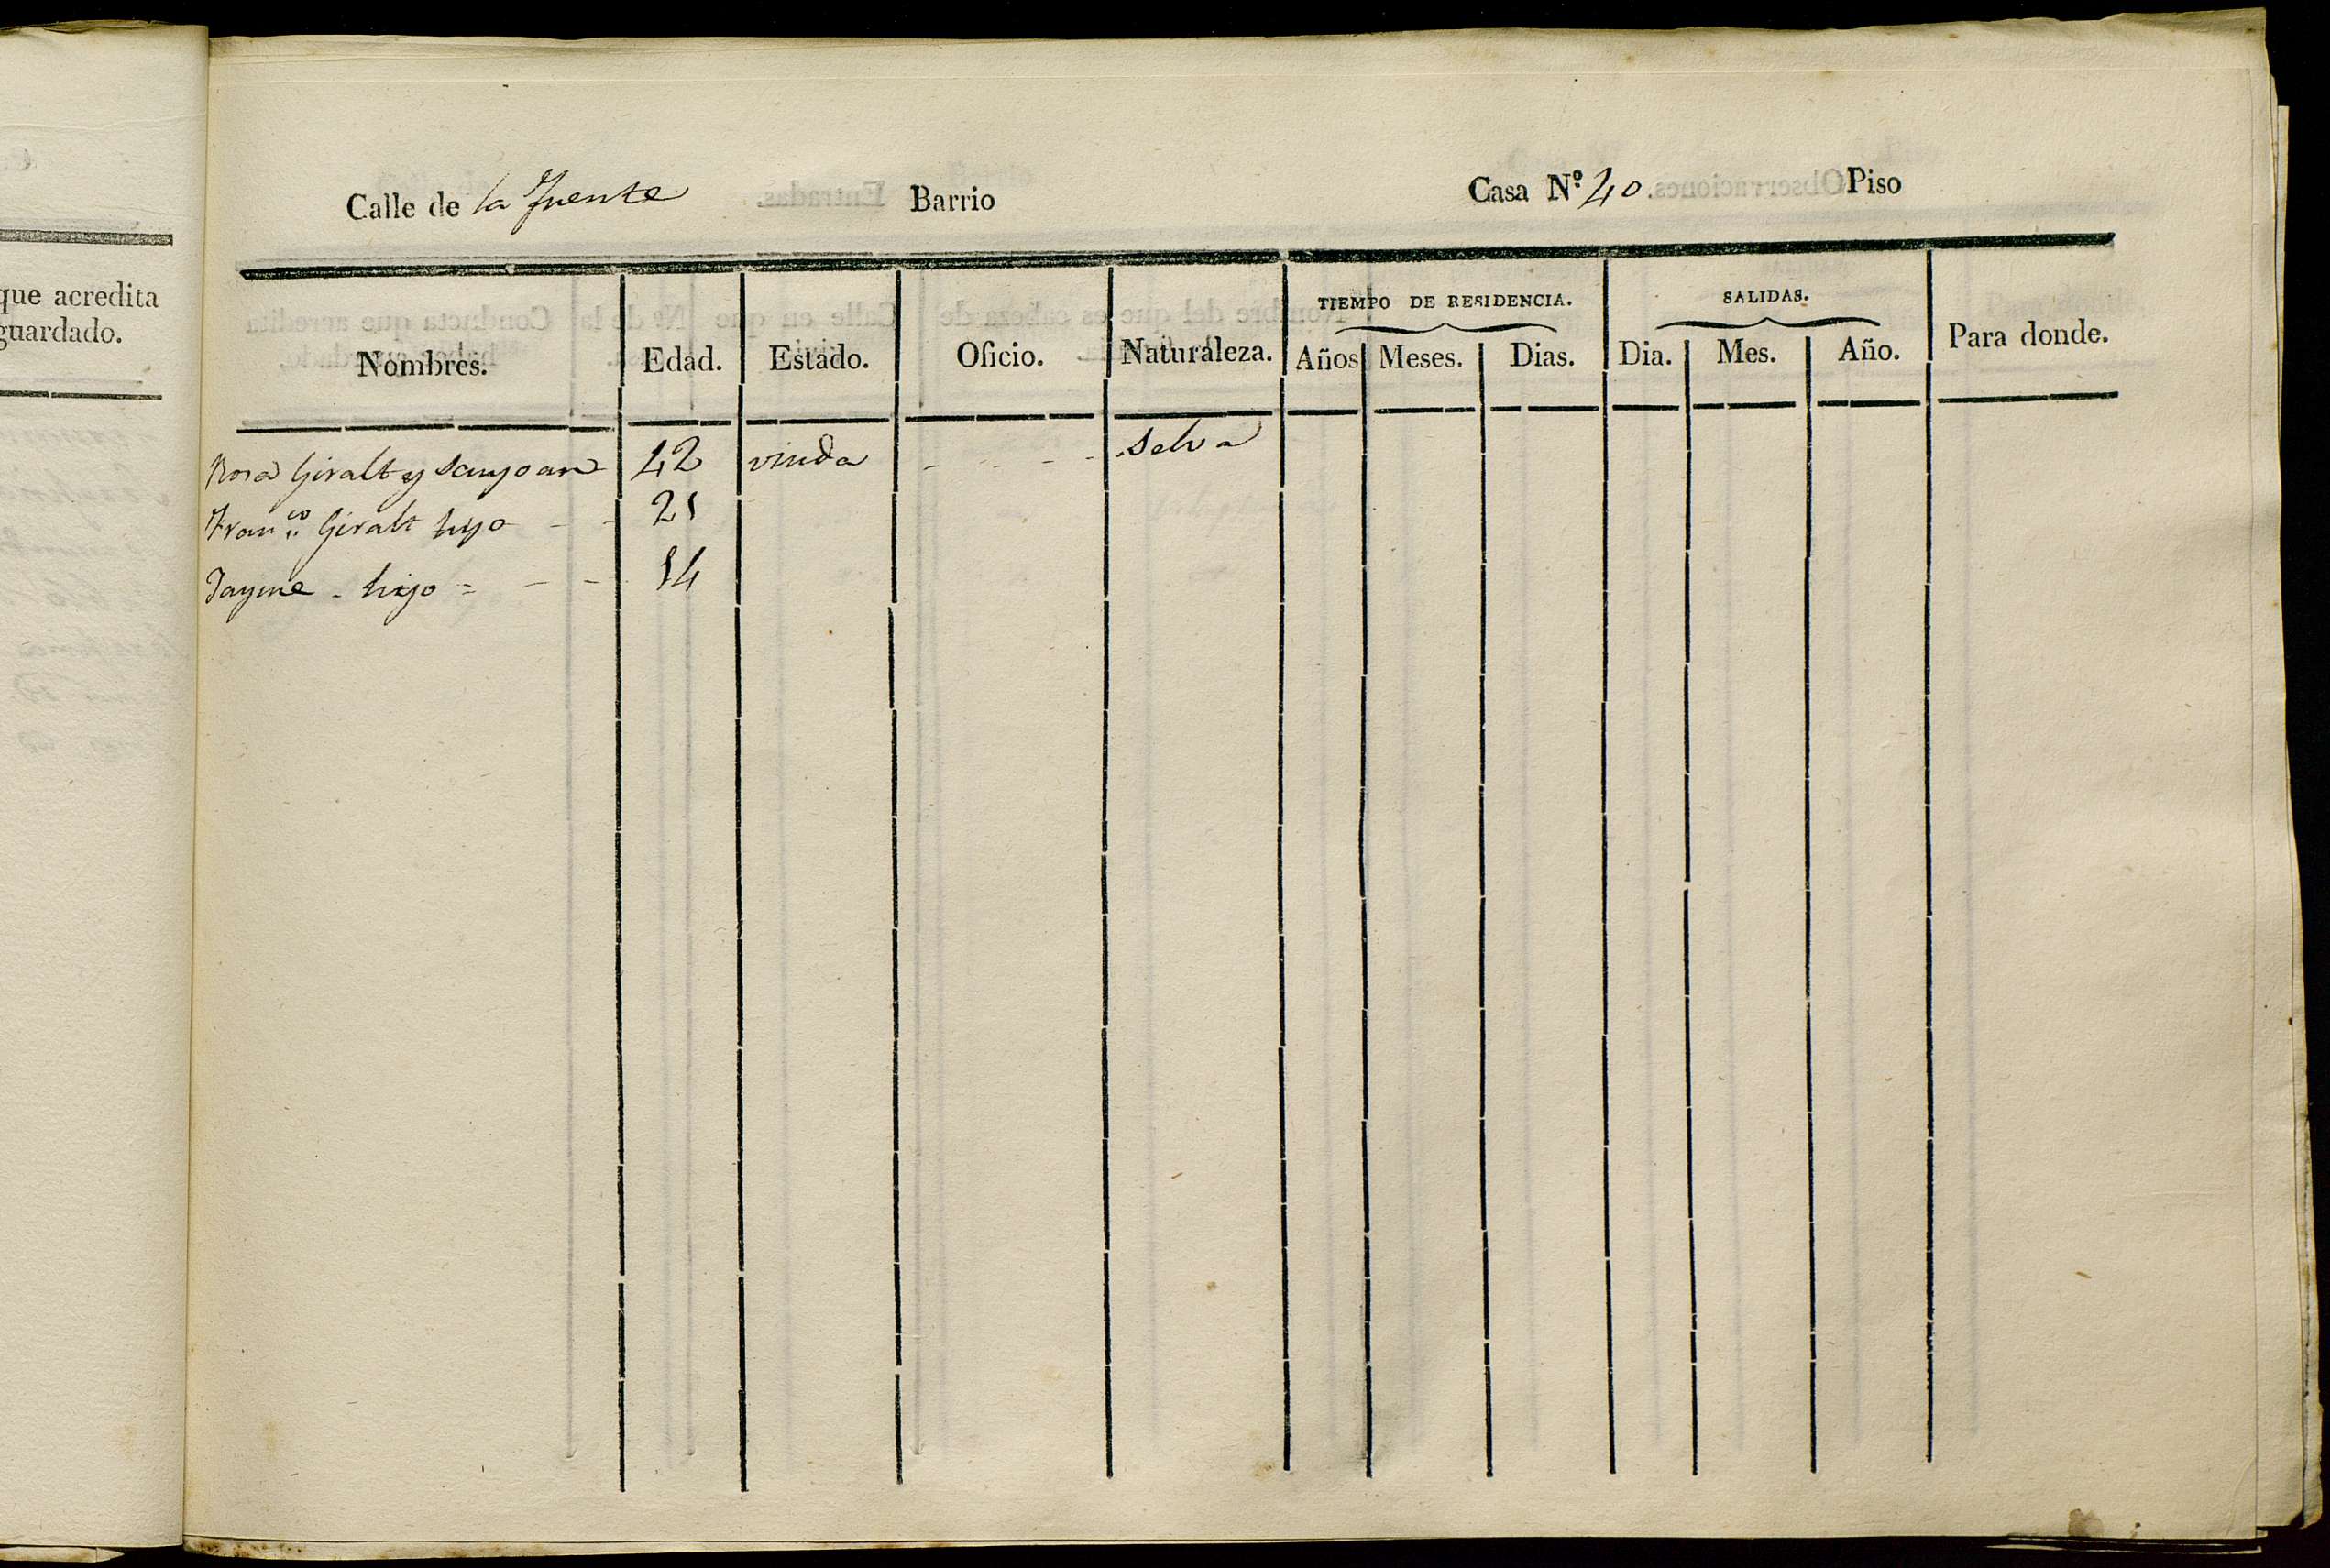 que acredita
guardado.
Calle de la Fuente Barrio Casa Nº. 40 Piso
TIEMPO DE RESIDENCIA. SALIDAS.
Nombres. Edad. Estado. Oficio. Naturaleza. Años Meses. Dias. Dia. Mes. Año. Para donde.
Rosa Giralt y 42 viuda - - - - Selva
Franco Giralt hijo - - 21
Jayme - hijo = - - 14